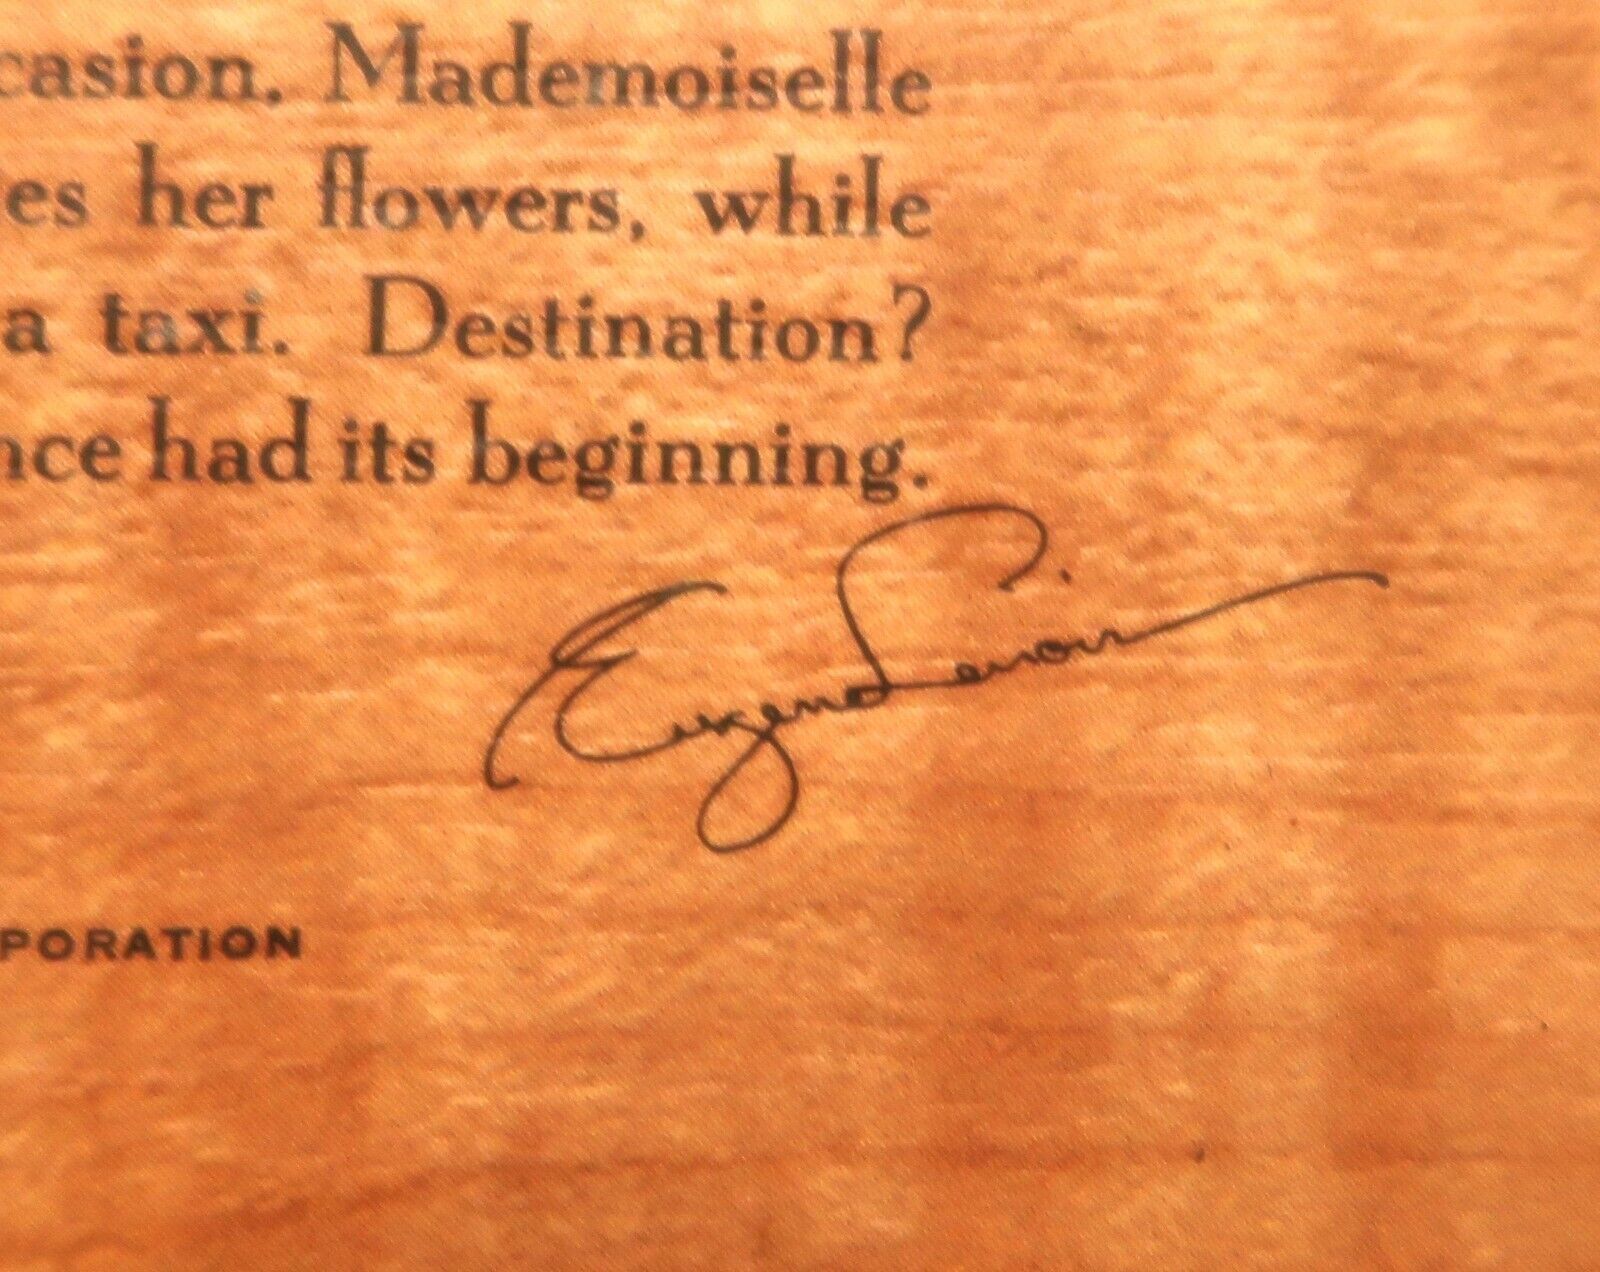 casion. Mademoiselle
es her flowers, while
a taxi. Destination?
nce had its beginning.
Eugene Lenoir
PORATION